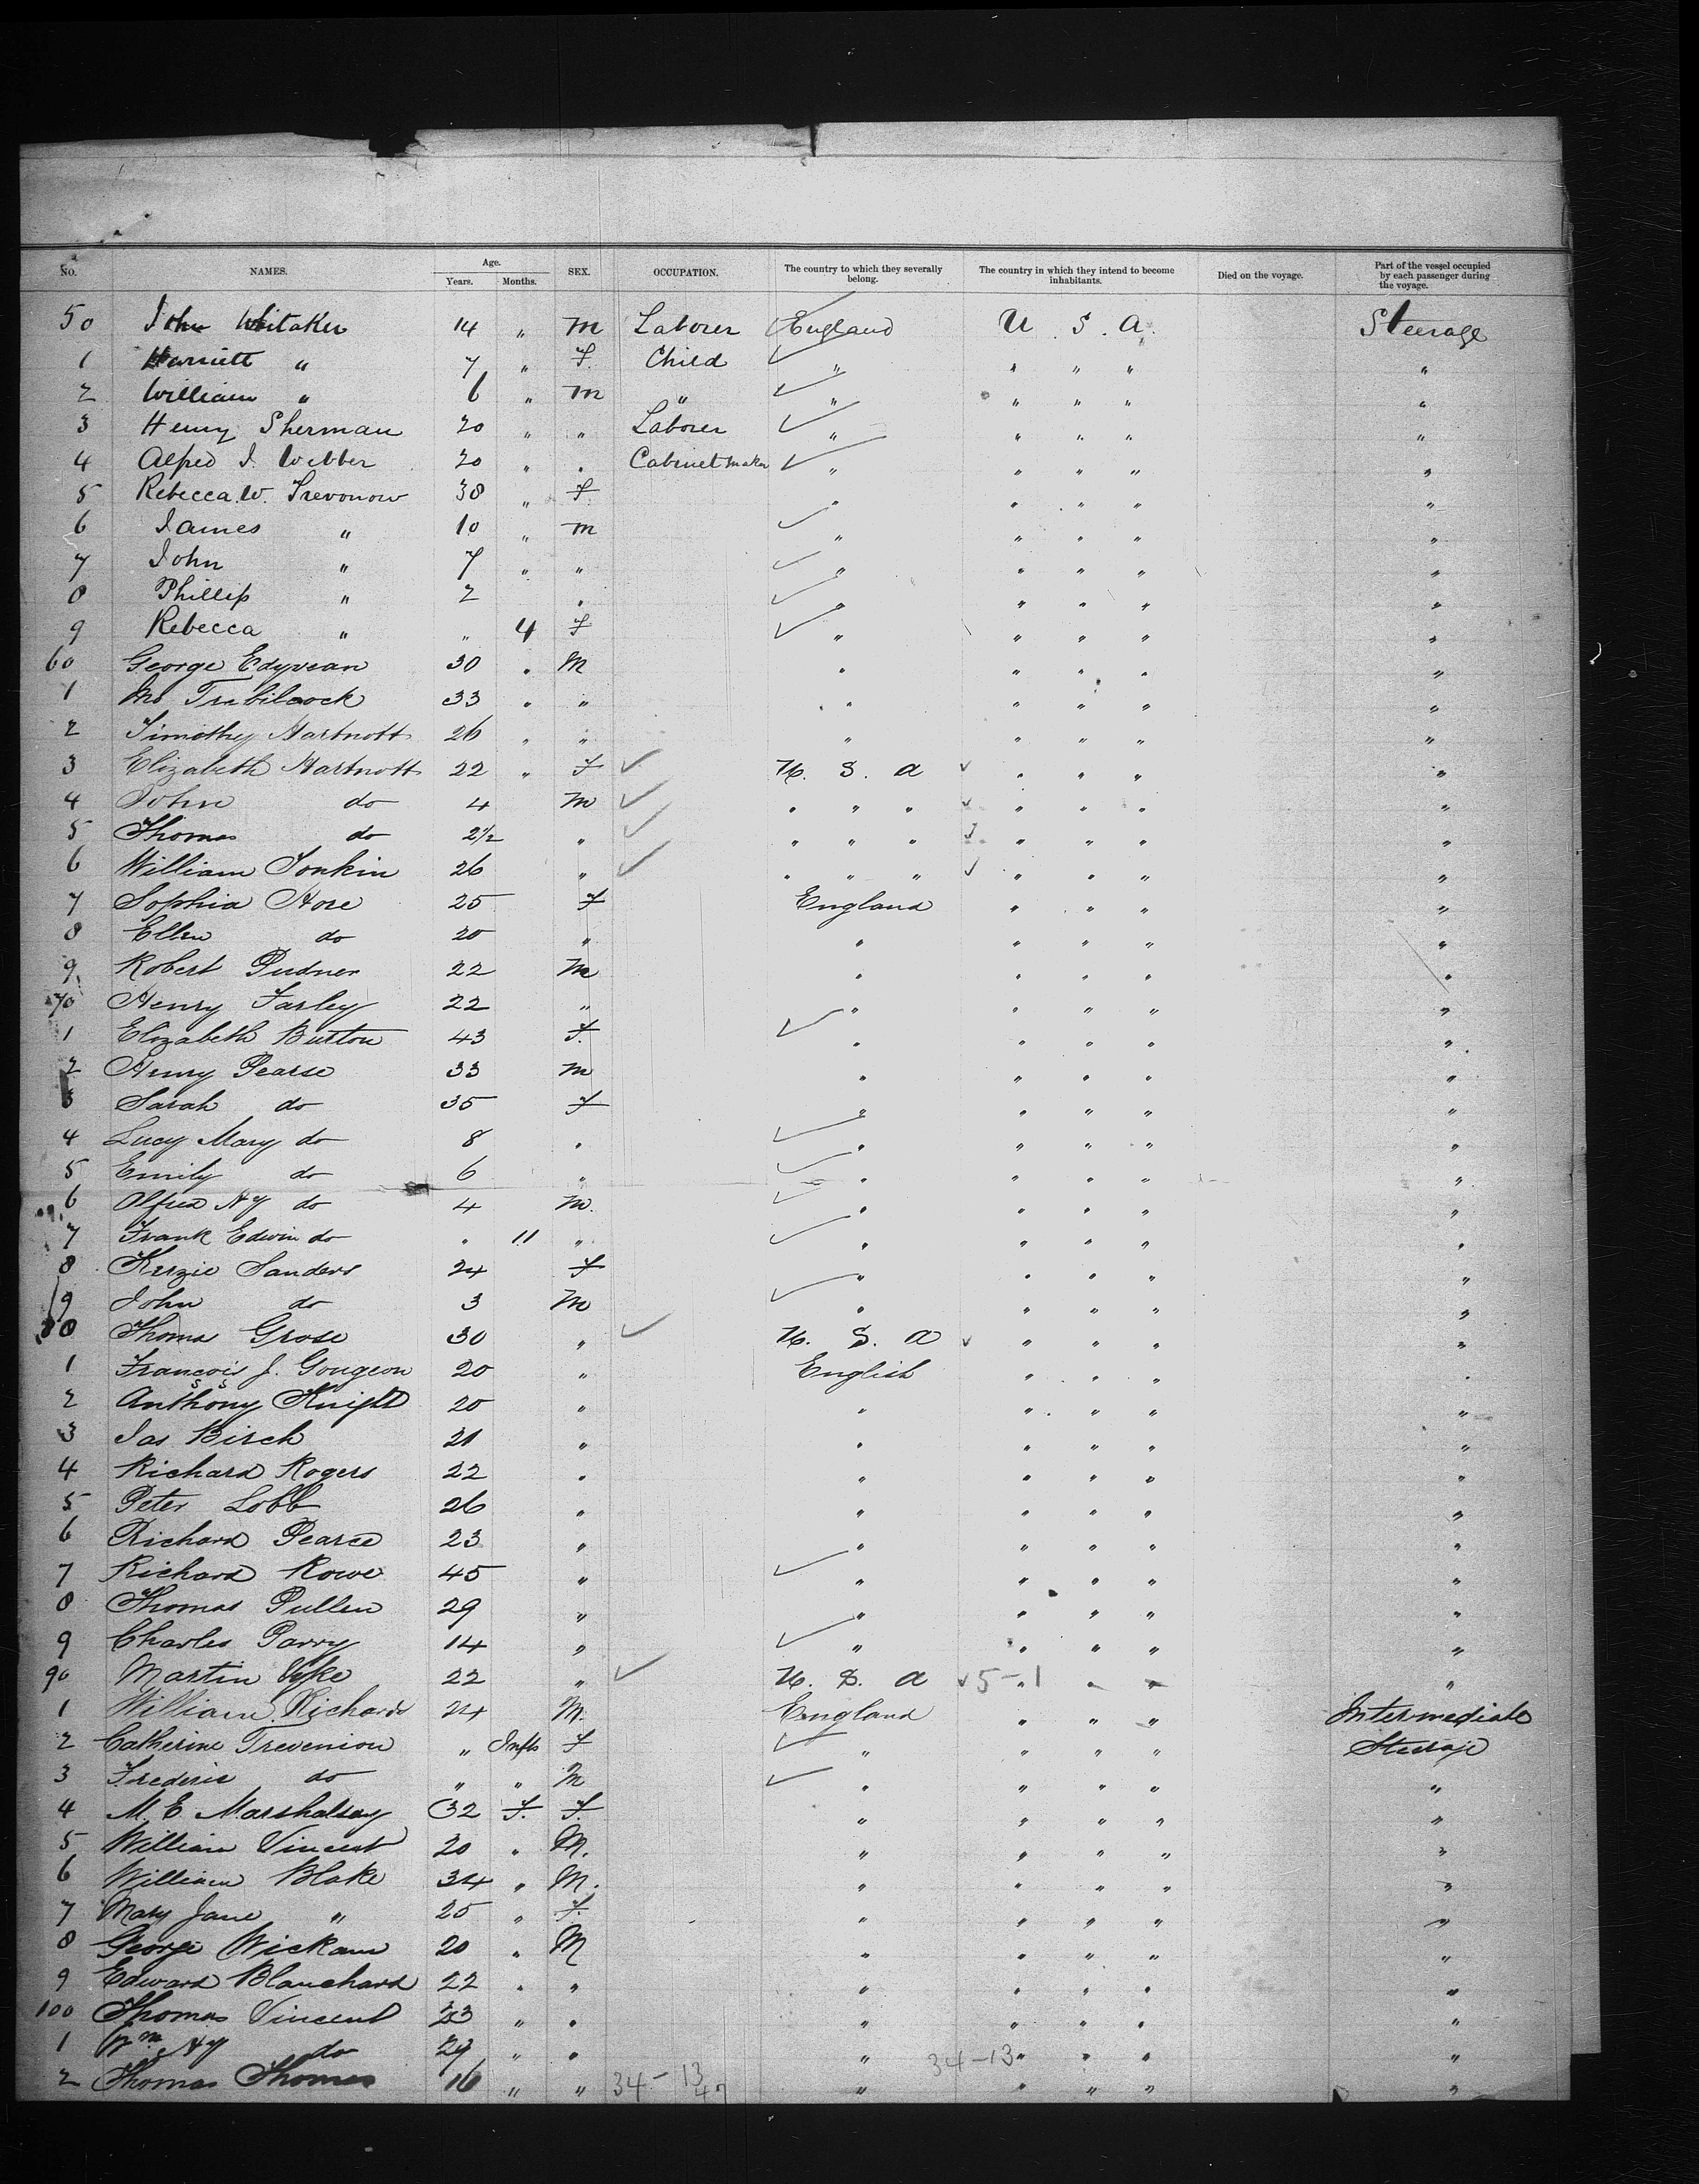 No. NAMES. Age. Years. Months. SEX. OCCUPATION. The country to which they severally belong. The country in which they intend to become inhabitants. Died on the voyage. Part of the vessel occupied by each passenger during the voyage.
50 John Whitaker 14 " M Laborer England U. S. A. Steerage
1 Harriett " 7 " F. Child " " " " "
2 William " 6 " M " " " " " "
3 Henry Sherman 20 " " Laborer " " " " "
4 Alfred J. Webber 20 " " Cabinet maker " " " " "
5 Rebecca W. Trevonow 38 " F " " " " "
6 James " 10 " M " " " " "
7 John " 7 " " " " " " "
8 Phillip " 2 " " " " " "
9 Rebecca " " 4 F " " " " "
60 George Edyvean 30 " M " " " " "
1 Trebilcock 33 " " " " " " "
2 Timothy Hartnott 26 " " " " " " "
3 Elizabeth Hartnott 22 " F U. S. A " " " "
4 John do 4 M " " " " " " "
5 Thomas do 2 1/2 " " " " " " " "
6 William Tonkin 26 " " " " " " " "
7 Sophia Hore 25 F England " " " "
8 Ellen do 20 " " " " " "
9 Robert Pudner 22 M " " " " "
70 Henry Farley 22 " " " " " "
1 Elizabeth Burton 43 F. " " " " "
2 Henry Pearse 33 M " " " " "
3 Sarah do 35 F " " " " "
4 Lucy Mary do 8 " " " " " "
5 Emily do 6 " " " " " "
6 Alfred Hy do 4 M. " " " " "
7 Frank Edwin do " 11 " " " " " "
8 Kerzie Sanders 24 F " " " " "
9 John do 3 M " " " " "
80 Thomas Grose 30 " U. S. A " " " "
1 François J. Gougeon 20 " English " " " "
2 Anthony Knight 20 " " " " " "
3 Jas Birch 21 " " " " " "
4 Richard Rogers 22 " " " " " "
5 Peter Lobb 26 " " " " " "
6 Richard Pearce 23 " " " " " "
7 Richard Rowe 45 " " " " " "
8 Thomas Pullen 29 " " " " " "
9 Charles Parry 14 " " " " " "
90 Martin 22 " U. S. A 5-1 " " " "
1 William Richards 24 M. England " " " Intermediate
2 Catherine Trevenion " Infts F " " " " Steerage
3 Frederic do " " M " " " " "
4 M. E. Marshalsay 32 F. F. " " " " "
5 William Vincent 20 " M. " " " " "
6 William Blake 34 " M. " " " " "
7 Mary Jane " 25 " F. " " " " "
8 George Wickam 20 " M " " " " "
9 Edward Blanchard 22 " " " " " " "
100 Thomas Vincent 23 " " " " " " "
1 Wm Hy do 29 " " " 34-13 " " " "
2 Thomas Thomas 16 " " 34-13 " " " " "
47